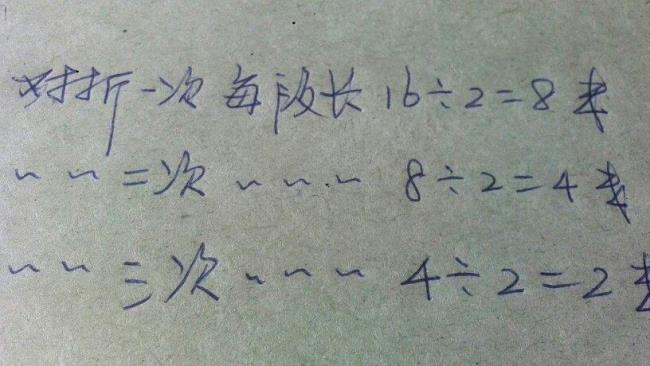 对折一次 每段长 16÷2=8 米
〃 〃 二次 〃 〃 〃 8÷2=4 米
〃 〃 三次 〃 〃 〃 4÷2=2 米